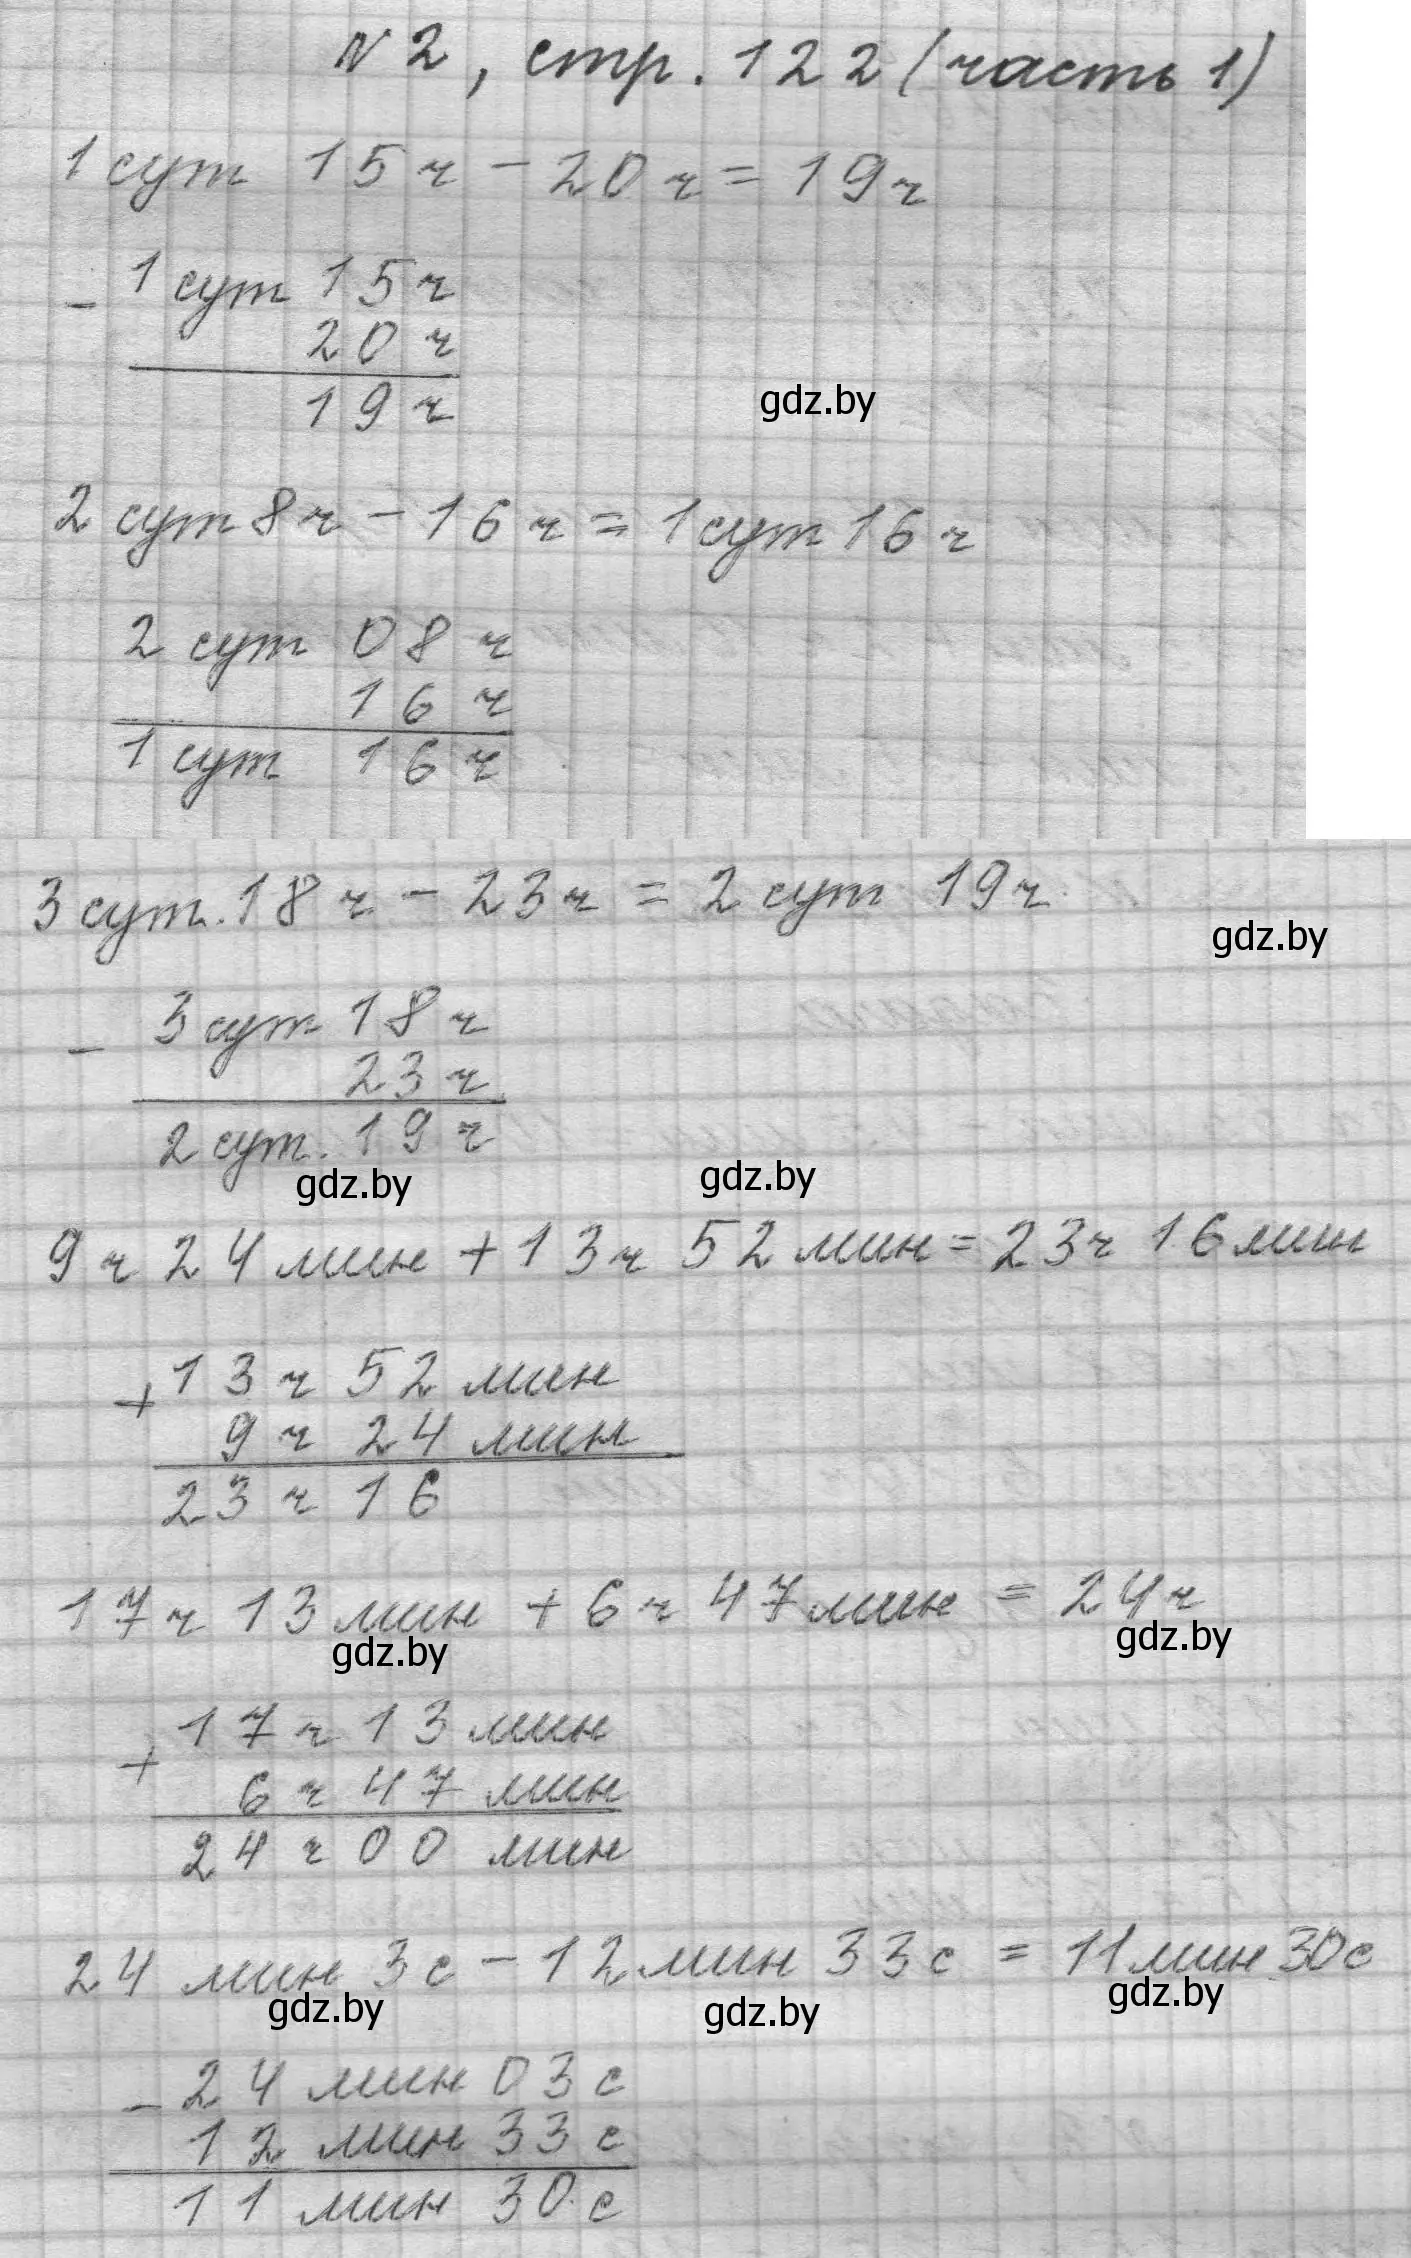 №2, стр. 122 (часть 1)
1 сут 15 ч - 20 ч = 19 ч
- 1 сут 15 ч
20 ч
19 ч
gdz.by
2 сут 8 ч - 16 ч = 1 сут 16 ч
2 сут 08 ч
16 ч
1 сут 16 ч
3 сут. 18 ч - 23 ч = 2 сут 19 ч
gdz.by
- 3 сут 18 ч
23 ч
2 сут. 19 ч
gdz.by gdz.by
9 ч 24 мин + 13 ч 52 мин = 23 ч 16 мин
+ 13 ч 52 мин
9 ч 24 мин
23 ч 16
17 ч 13 мин + 6 ч 47 мин = 24 ч
gdz.by gdz.by
+ 17 ч 13 мин
6 ч 47 мин
24 ч 00 мин
24 мин 3 с - 12 мин 33 с = 11 мин 30 с
gdz.by gdz.by gdz.by
- 24 мин 03 с
12 мин 33 с
11 мин 30 с